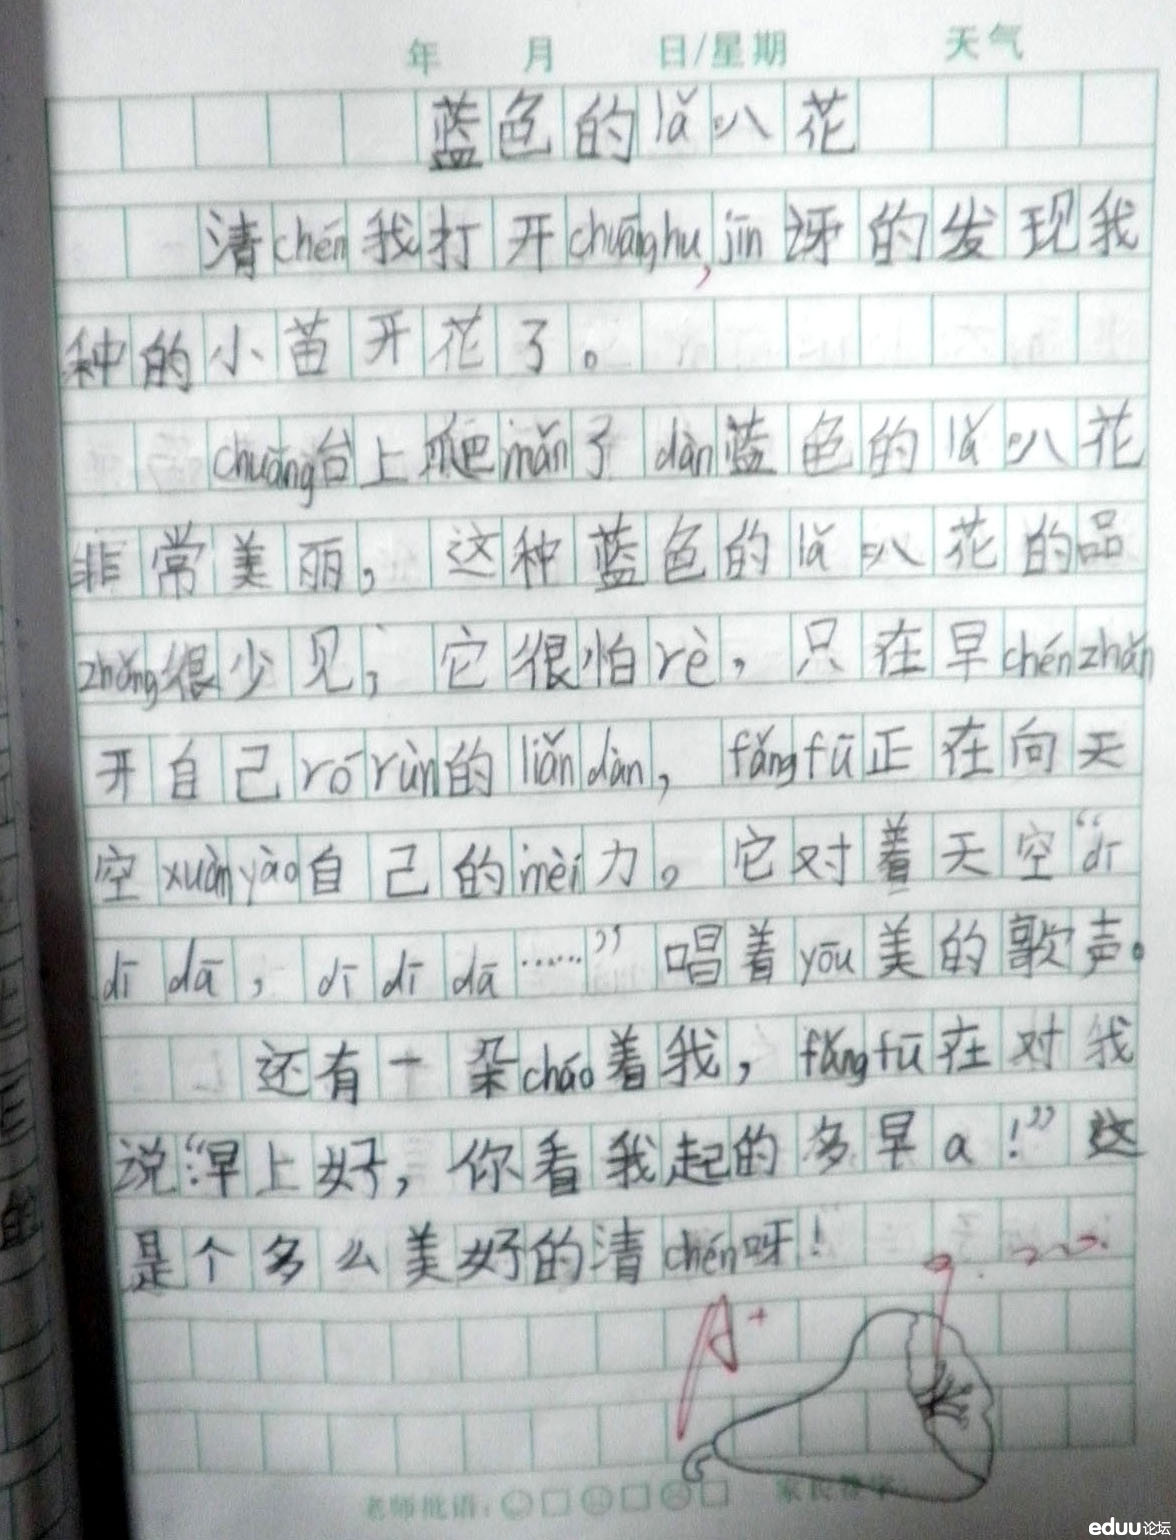 年 月 日/星期 天气
蓝色的lǎ叭花
清chén我打开chuānghu,jīn讶的发现我
种的小苗开花了。
chuāng台上爬mǎn了dàn蓝色的lǎ叭花
非常美丽,这种蓝色的lǎ叭花的品
zhǒng很少见;它很怕rè,只在早chénzhǎn
开自己rórùn的liǎndàn,fǎngfū正在向天
空xuànyào自己的mèi力。它对着天空“dī
dī dā,dī dī dā……”唱着yōu美的歌声。
还有一朵cháo着我,fǎngfū在对我
说:“早上好,你看我起的多早a!”这
是个多么美好的清chén呀!
A+
9.
老师批语:
家长签字:
eduu论坛